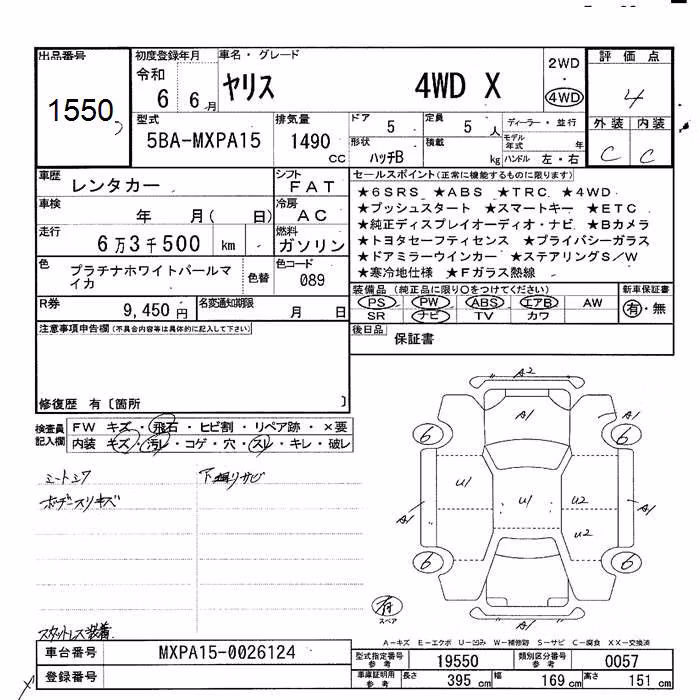 出品番号
1550
初度登録年月
令和
6 6月
車名・グレード
ヤリス 4WD X
2WD
・
4WD
評価点
4
型式
5BA-MXPA15
排気量
1490
cc
ドア
5
定員
5 人
ディーラー・並行
モデル年式 年
外装 内装
C C
形状
ハッチB
積載
kg
ハンドル 左・右
車歴
レンタカー
シフト
FAT
車検
年 月( 日)
冷房
AC
走行
6万3千500 km
燃料
ガソリン
色
プラチナホワイトパールマイカ
色替
色コード
089
R券
9,450円
名変通知期限
月 日
セールスポイント(正常に機能するものに限ります)
★6SRS ★ABS ★TRC ★4WD
★プッシュスタート ★スマートキー ★ETC
★純正ディスプレイオーディオ・ナビ ★Bカメラ
★トヨタセーフティセンス ★プライバシーガラス
★ドアミラーウインカー ★ステアリングS/W
★寒冷地仕様 ★Fガラス熱線
装備品 (純正品に限り○をつけてください)
PS PW ABS エアB AW
SR ナビ TV カワ
新車保証書
有・無
後日品
保証書
注意事項申告欄(不具合内容等は具体的に記入して下さい)
修復歴 有〔箇所 〕
検査員記入欄
FW キズ・飛石・ヒビ割・リペア跡・×要
内装 キズ・汚レ・コゲ・穴・スレ・キレ・破レ
シートシワ
下廻りサビ
ボデースリキズ
スタットレス装着
A2
A1
A1
6
6
U1
U1
U2
U2
A1
A1
6
6
A1
有
スペア
A-キズ E-エクボ U-凹み W-補修跡 S-サビ C-腐食 XX-交換済
車台番号
MXPA15-0026124
登録番号
型式指定番号
参考
19550
類別区分番号
参考
0057
車庫証明用
参考
長さ
395 cm
幅
169 cm
高さ
151 cm